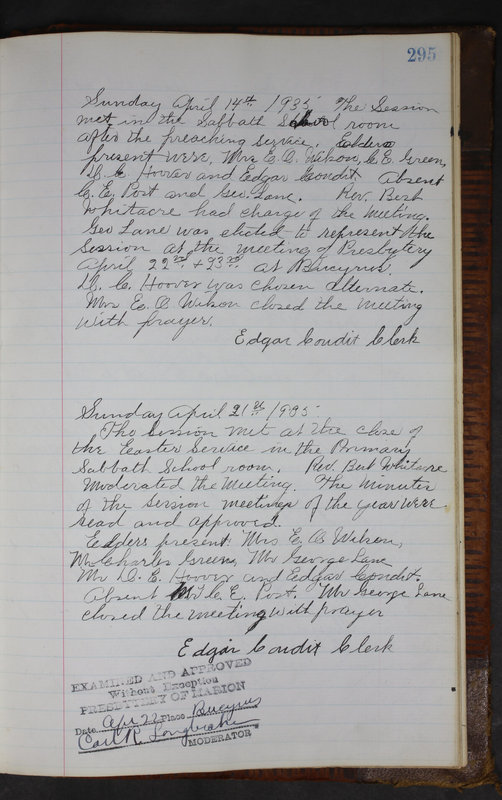 295
Sunday April 14th 1935 The Session
met in the Sabbath School room
after the preaching service. Elders
present were, Mrs E. O. Wilson, C. E. Green,
D. C. Hoover and Edgar Condit Absent
C. E. Post and Geo. Lane. Rev. Bert
Whitacre had charge of the meeting.
Geo Lane was elected to represent the
Session at the meeting of Presbytery
April 22nd + 23rd at Bucyrus.
D. C. Hoover was chosen alternate.
Mrs E. O. Wilson closed the meeting
with prayer.
Edgar Condit Clerk
Sunday April 21st 1935
The Session met at the close of
the Easter Service in the Primary
Sabbath School room. Rev. Bert Whitacre
Moderated the Meeting. The minutes
of the session meetings of the year were
read and approved.
Elders present Mrs E. O. Wilson,
Mr Charles Green, Mr George Lane
Mr D. C. Hoover and Edgar Condit.
Absent C. E. Post. Mr George Lane
closed the meeting with prayer
Edgar Condit Clerk
EXAMINED AND APPROVED
Without Exception
PRESBYTERY OF MARION
Date Apr 22 Place Bucyrus
Carl R. Longbrake
MODERATOR